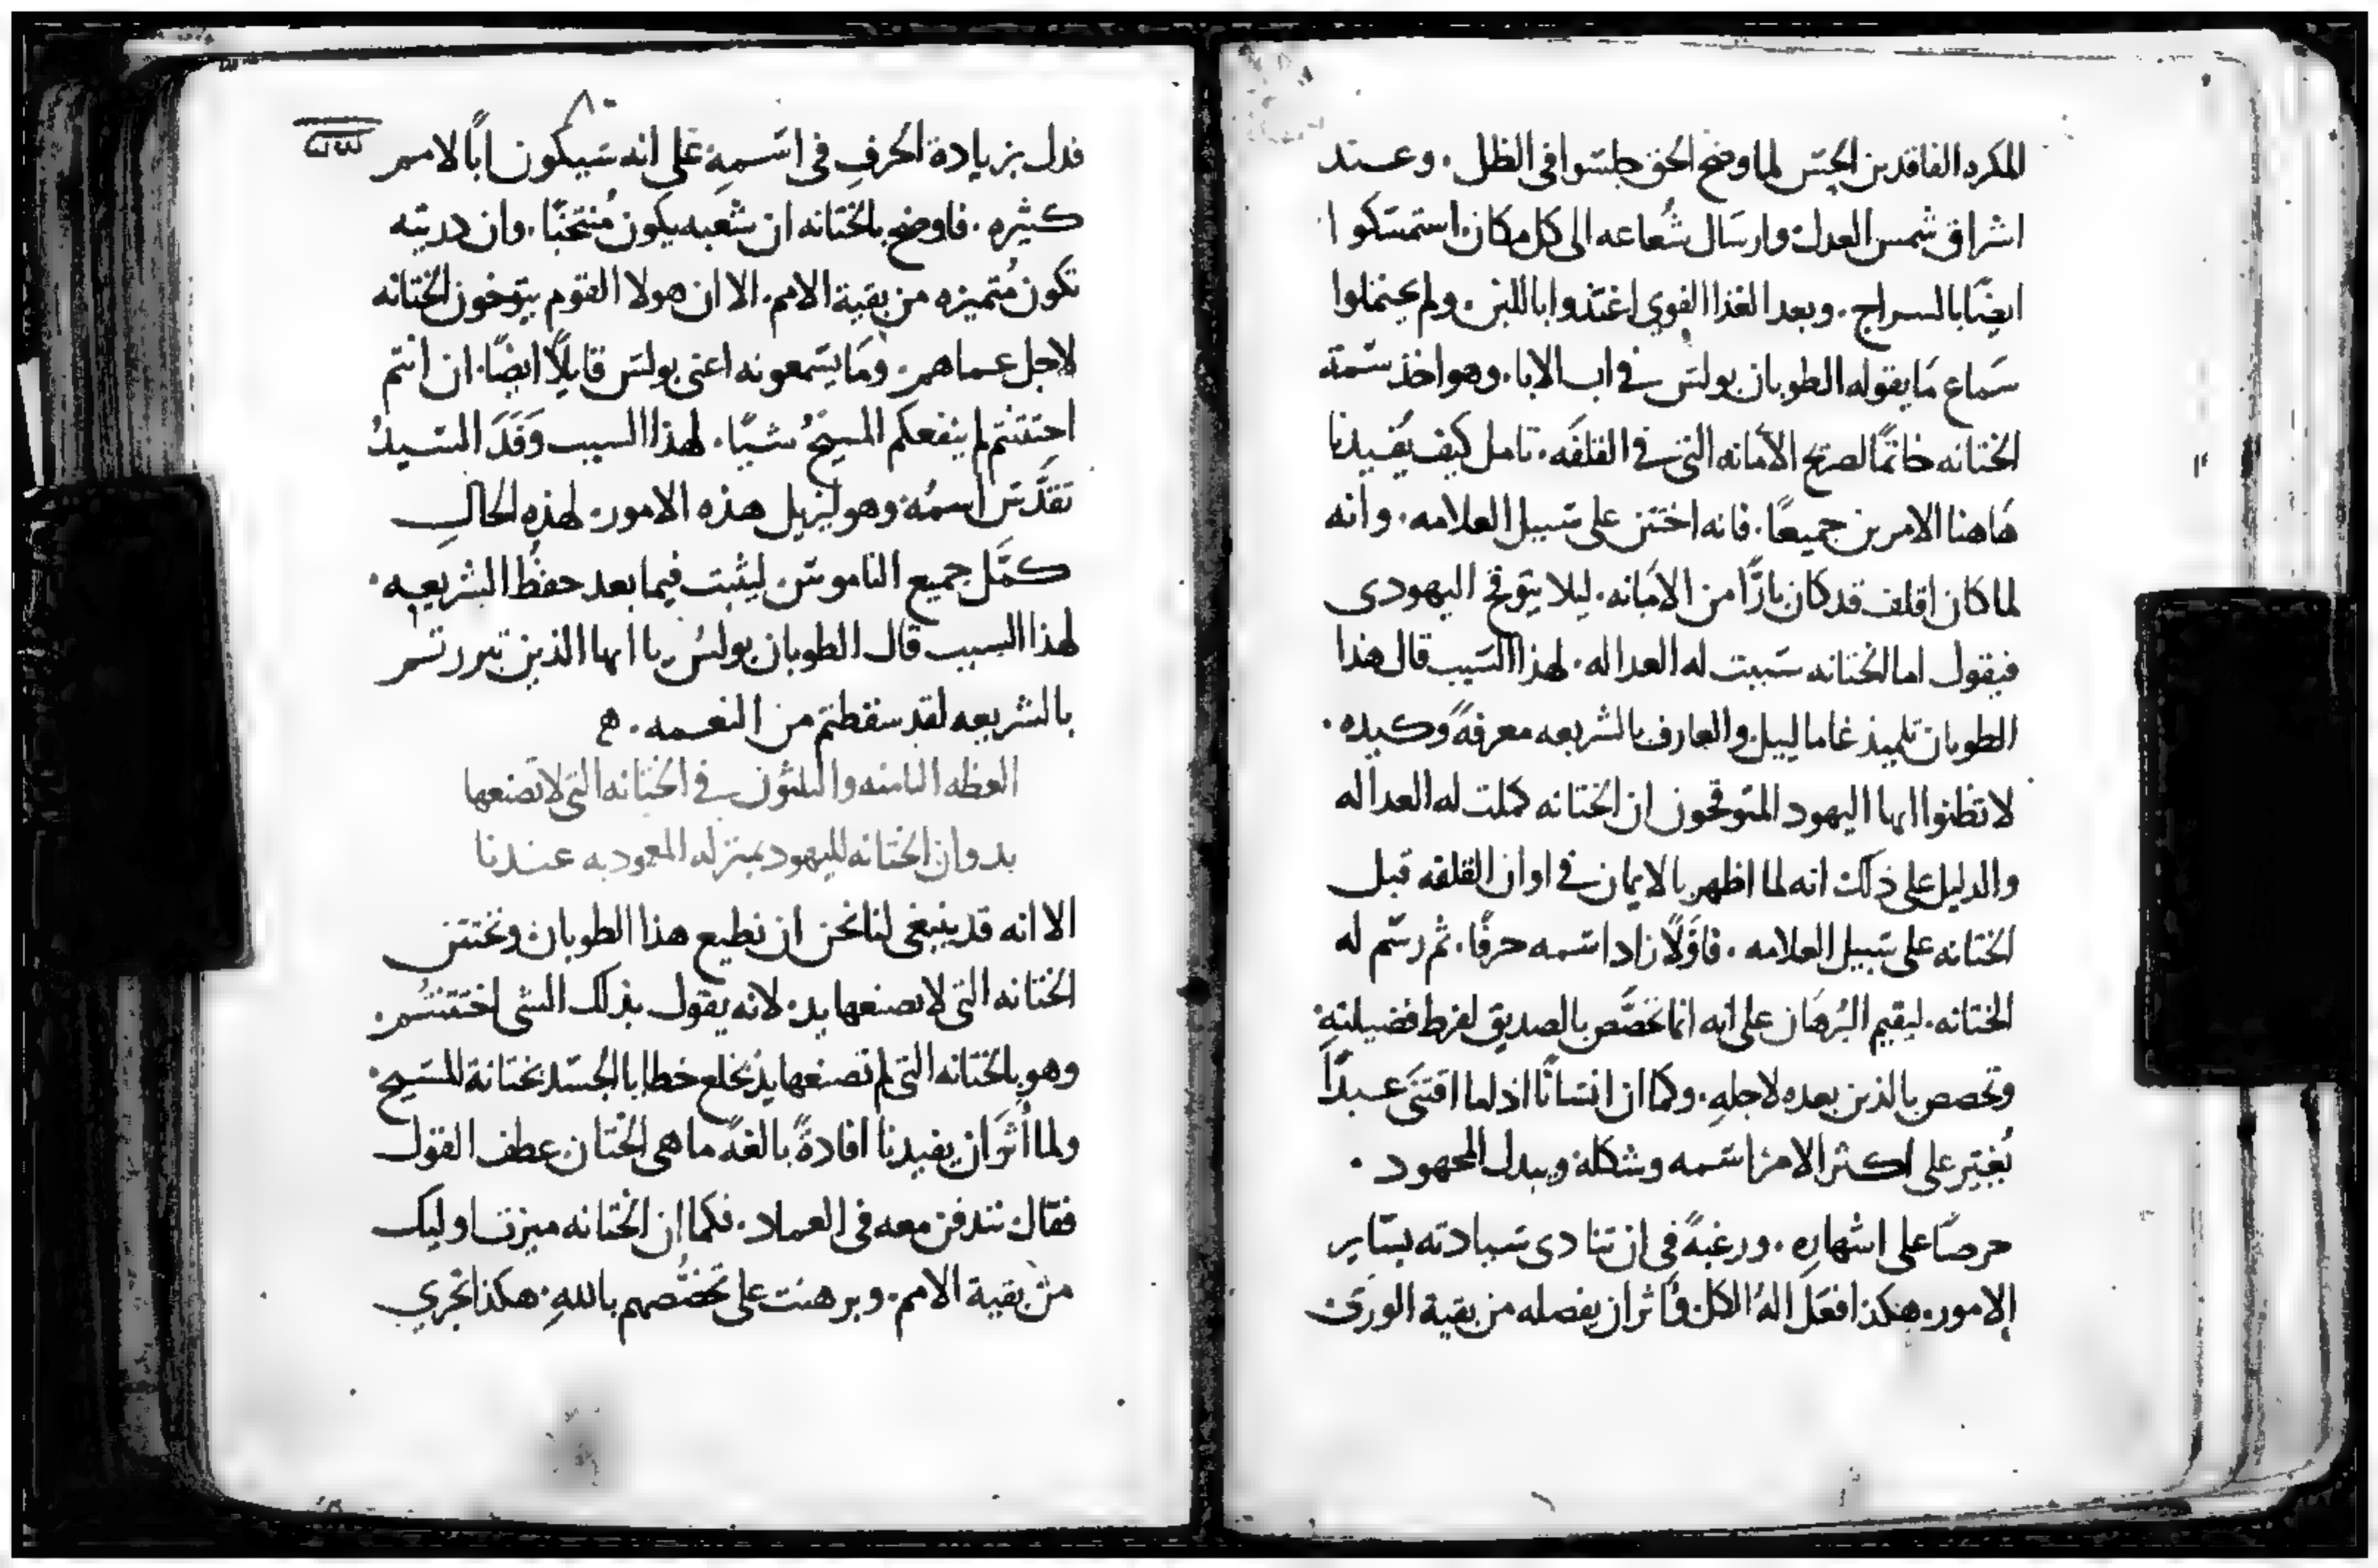 المكره الفاقدين الحِس لما وضح الحق جلسوا في الظل . وعند
اشراق شمس العدل وارسال شُعاعه الى كل مكان استمسكوا
ايضًا بالسراج . وبعد الغذا القوي اغتذوا باللبن . ولم يحتملوا
سَماع مَا يقوله الطوبان بولس في اب الابا . وهو اخذ سمة
الختانه خاتمًا لصريح الأمانه التي في القلفَه . تامل كيف يُفيدنا
هَاهنا الامرين جميعًا . فانه اختتن على سبيل العلامه . وانه
لما كان اقلف قد كان بارًّا من الأمَانه . ليلا يتوقح اليهودي
فيقول اما الختانه سببت له العداله . لهذا السبب قال هذا
الطوبان تلميذ غاماليبل والعارف بالشريعه معرفةً وكيده .
لا تظنوا ايها اليهود المتوقحون ان الختانه كملت له العداله
والدليل على ذلك انه لما اظهر بالايمان في اوان القلفه قبل
الختانه على سبيل العلامه . فاوّلًا زاد اسمه حرفًا . ثم رسم له
الختانه . ليقيم البُرهَان على انه انما تخصَّص بالصديق لفرط فضيلتهِ .
وتخصص بالذين بعده لاجلهِ . وكما ان انسانًا اذا ما اقتنَى عبدًا
يُغيّر على اكثر الامر اسمه وشكله ويبدل المجهود .
حرصًا على اشهارهِ . ورغبةً في ان تنادى سيادته بساير
الامور . هكذا فعَل الهُ الكل فآثر ان يفصله من بقية الورى
٨٠
فدل بزيادة الحَرفِ في اسمهِ على انه سيكون ابًا لامم
كثيره . فاوضح بالختانه ان شعبه يكون مُنتخبًا . وان دريته
تكون مُتميزه من بقية الامم . الا ان هولا القوم يتوخون الختانه
لاجل عماهم . ومَا يسمعونه اعني بولس قايلًا ايضًا . ان انتم
احتنتم لم ينفعكم المسيحُ شيًا . لهذا السبب وَفَدَ السّيدُ
تقدَّس اسمُه وهو ليُزيل هذه الامور . لهذهِ الحالِ
كمَّل جميع الناموس . ليثبت فيما بعد حفظُ الشريعه .
لهذا السبب قال الطوبان بولسُ . يا ايها الذين تبررتم
بالشريعه لقد سقطتم من النعمه . ه
العظه الثامنه والثلثون في الختانه التي لا تصنعها
يد وان الختانه لليهود بمنزله المعوديه عندنا
الا انه قد ينبغي لنا نحن ان نطيع هذا الطوبان ونختتن
الختانه التي لا تصنعها يد . لانه يقول بذلك الشي اختتنتُم .
وهو بالختانه التي لم تصنعها يد بخلع خطايا الجسد بختانة المسيح .
ولما أثَرَ ان يفيدنا افادةً بالغةً ما هي الختان عطف القول
فقال نندفن معه في العماد . فكما ان الختانه ميزت اوليك
من بقية الامم . وبرهنت على تخصُّصهم باللهِ . هكذا تجري